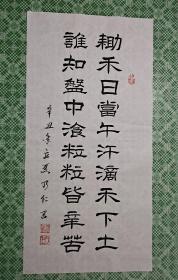 鋤禾日當午汗滴禾下土
誰知盤中飡粒粒皆辛苦
辛丑